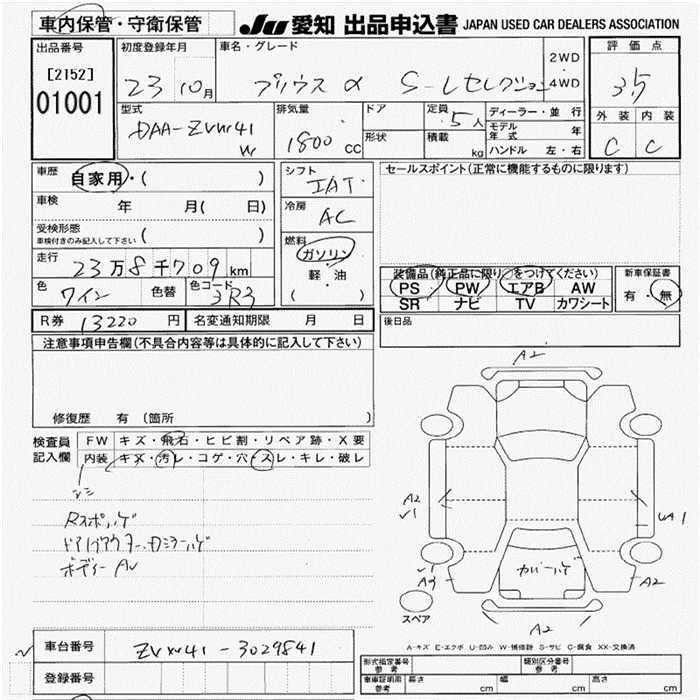 車内保管・守衛保管
JU 愛知 出品申込書 JAPAN USED CAR DEALERS ASSOCIATION
出品番号
[2152]
01001
初度登録年月
23 10月
車名・グレード
プリウス α S-Lセレクション
2WD
・
4WD
評価点
3.5
外装 内装
C C
型式
DAA-ZVW41
W
排気量
1800 cc
ドア
形状
定員 5人
積載 kg
ディーラー・並行
モデル年式 年
ハンドル 左・右
車歴 自家用・( )
車検 年 月( 日)
受検形態
車検付きのみ記入して下さい ( )
走行 23万8千709km
色 ワイン 色替 色コード 3R3
シフト
IAT
冷房
AC
燃料
ガソリン
軽・油
( )
セールスポイント(正常に機能するものに限ります)
装備品(純正品に限り○をつけてください)
PS PW エアB AW
SR ナビ TV カワシート
新車保証書
有・無
R券 13220円 名変通知期限 月 日
後日品
注意事項申告欄(不具合内容等は具体的に記入して下さい)
修復歴 有(箇所 )
検査員
記入欄
FW キズ・飛石・ヒビ割・リペア跡・X要
内装 キズ・汚レ・コゲ・穴・スレ・キレ・破レ
シミ
Rスポハゲ
ドアバアウター・Dミラーハゲ
ボディー AU
A2
A2
√1
UA1
√1
A3
カバーハゲ
A2
A2
スペア
A-キズ E-エクボ U-凹み W-補修跡 S-サビ C-腐食 XX-交換済
車台番号 ZVW41-3029841
登録番号
形式指定番号
参考
類別区分番号
参考
車庫証明用
参考
長さ cm 幅 cm 高さ cm